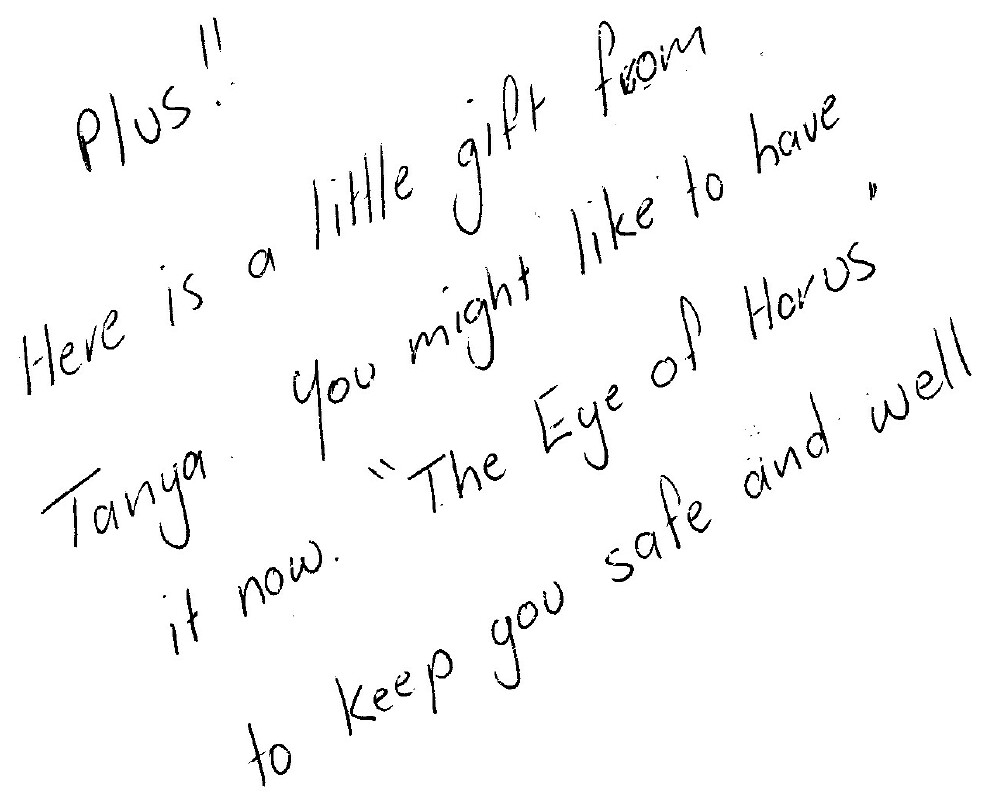 Plus!!
Here is a little gift from
Tanya. You might like to have
it now. "The Eye of Horus"
to keep you safe and well